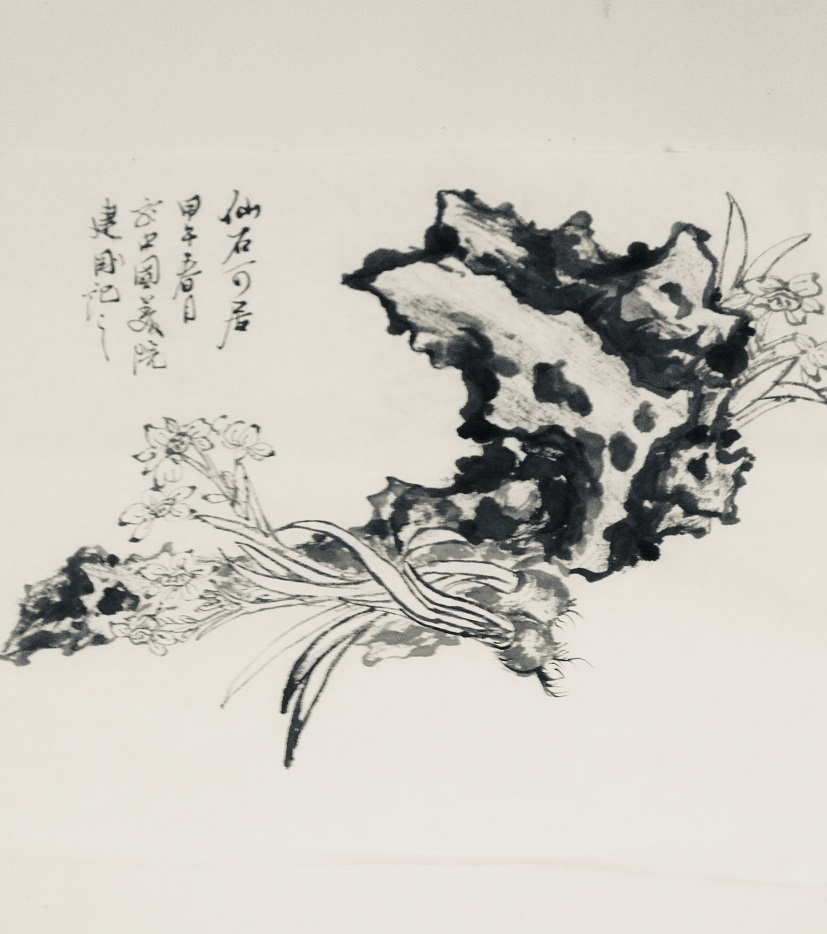 仙石可居
甲午春月
於中國美院
建国記之